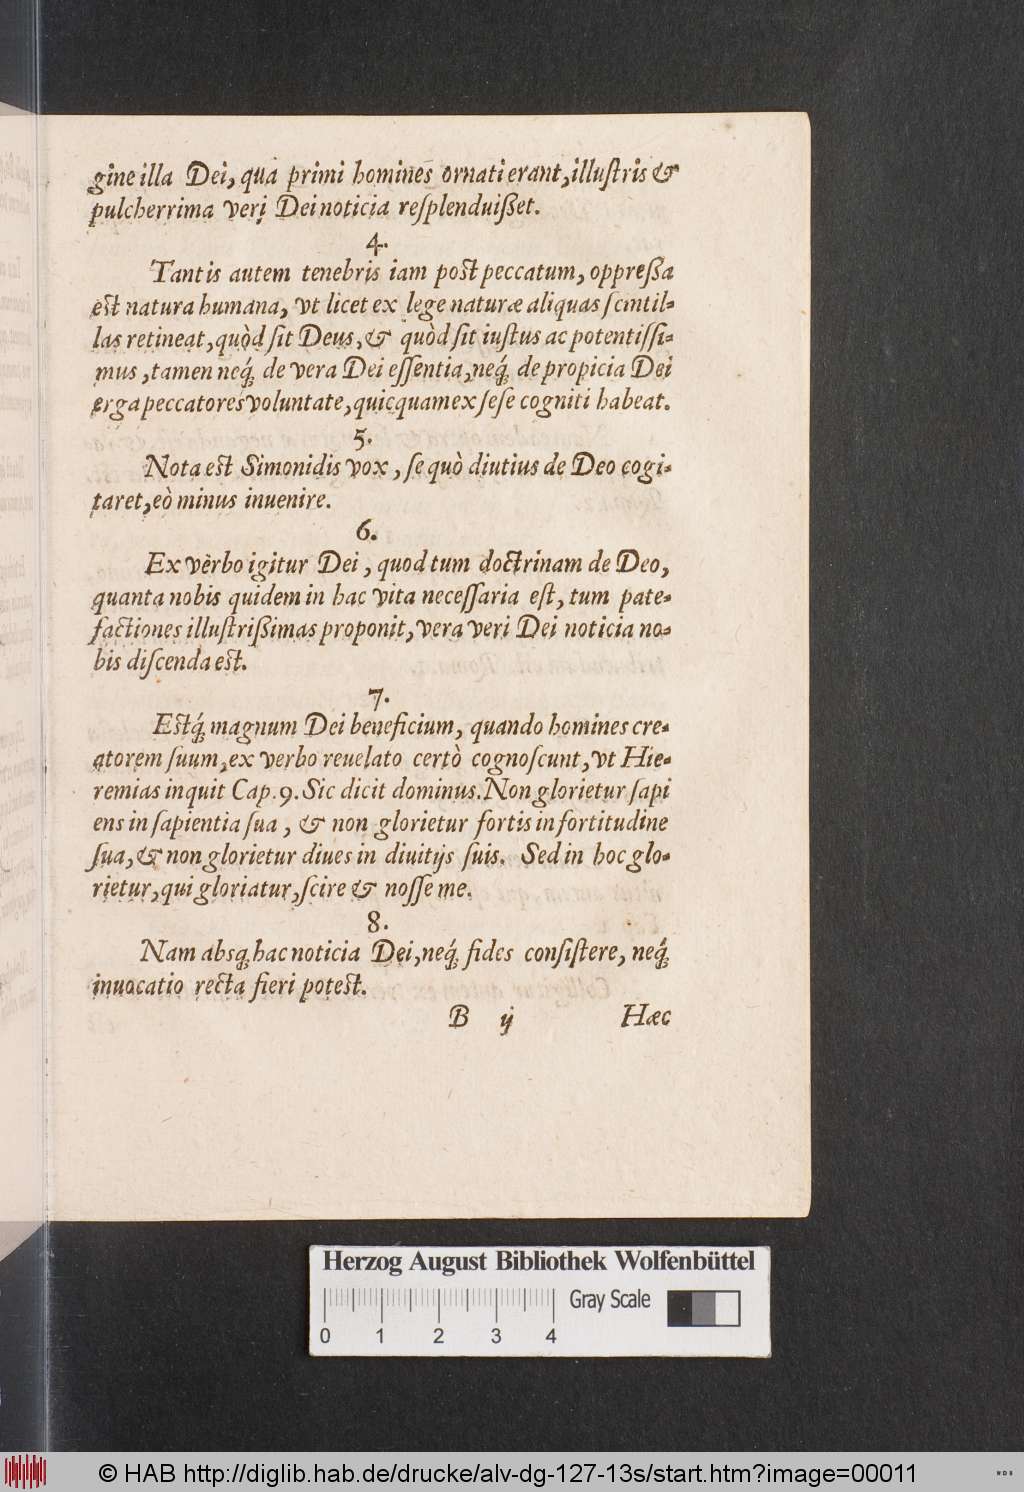 gine illa Dei, qua primi homines ornati erant, illuſtris &
pulcherrima veri Dei noticia reſplenduiſſet.
4.
Tantis autem tenebris iam poſt peccatum, oppreſſa
eſt natura humana, vt licet ex lege naturæ aliquas ſcintil-
las retineat, quòd ſit Deus, & quòd ſit iuſtus ac potentiſſi-
mus, tamen neq́; de vera Dei eſſentia, neq́; de propicia Dei
erga peccatores voluntate, quicquam ex ſeſe cogniti habeat.
5.
Nota eſt Simonidis vox, ſe quò diutius de Deo cogi-
taret, eò minus inuenire.
6.
Ex verbo igitur Dei, quod tum doctrinam de Deo,
quanta nobis quidem in hac vita neceſſaria eſt, tum pate-
factiones illuſtriſſimas proponit, vera veri Dei noticia no-
bis diſcenda eſt.
7.
Eſtq́; magnum Dei beneficium, quando homines cre-
atorem ſuum, ex verbo reuelato certò cognoſcunt, vt Hie-
remias inquit Cap. 9. Sic dicit dominus. Non glorietur ſapi
ens in ſapientia ſua, & non glorietur fortis in fortitudine
ſua, & non glorietur diues in diuitijs ſuis. Sed in hoc glo-
rietur, qui gloriatur, ſcire & noſſe me.
8.
Nam absq; hac noticia Dei, neq́; fides conſiſtere, neq́;
inuocatio recta fieri poteſt.
B ij Hæc
Herzog August Bibliothek Wolfenbüttel
Gray Scale
0 1 2 3 4
© HAB http://diglib.hab.de/drucke/alv-dg-127-13s/start.htm?image=00011